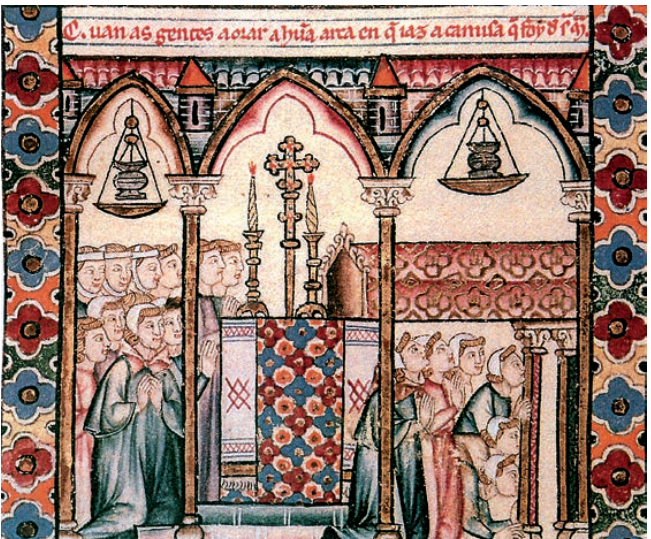 C. uan as gentes aorar a hũa arca en q̃ iaz a camisa q̃ foy d s̃. M.